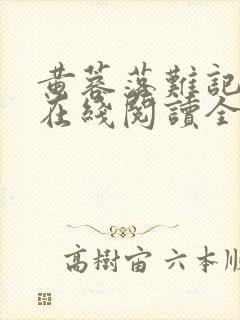 黄蓉落難記
在綫閱讀全
高樹宙 六本順